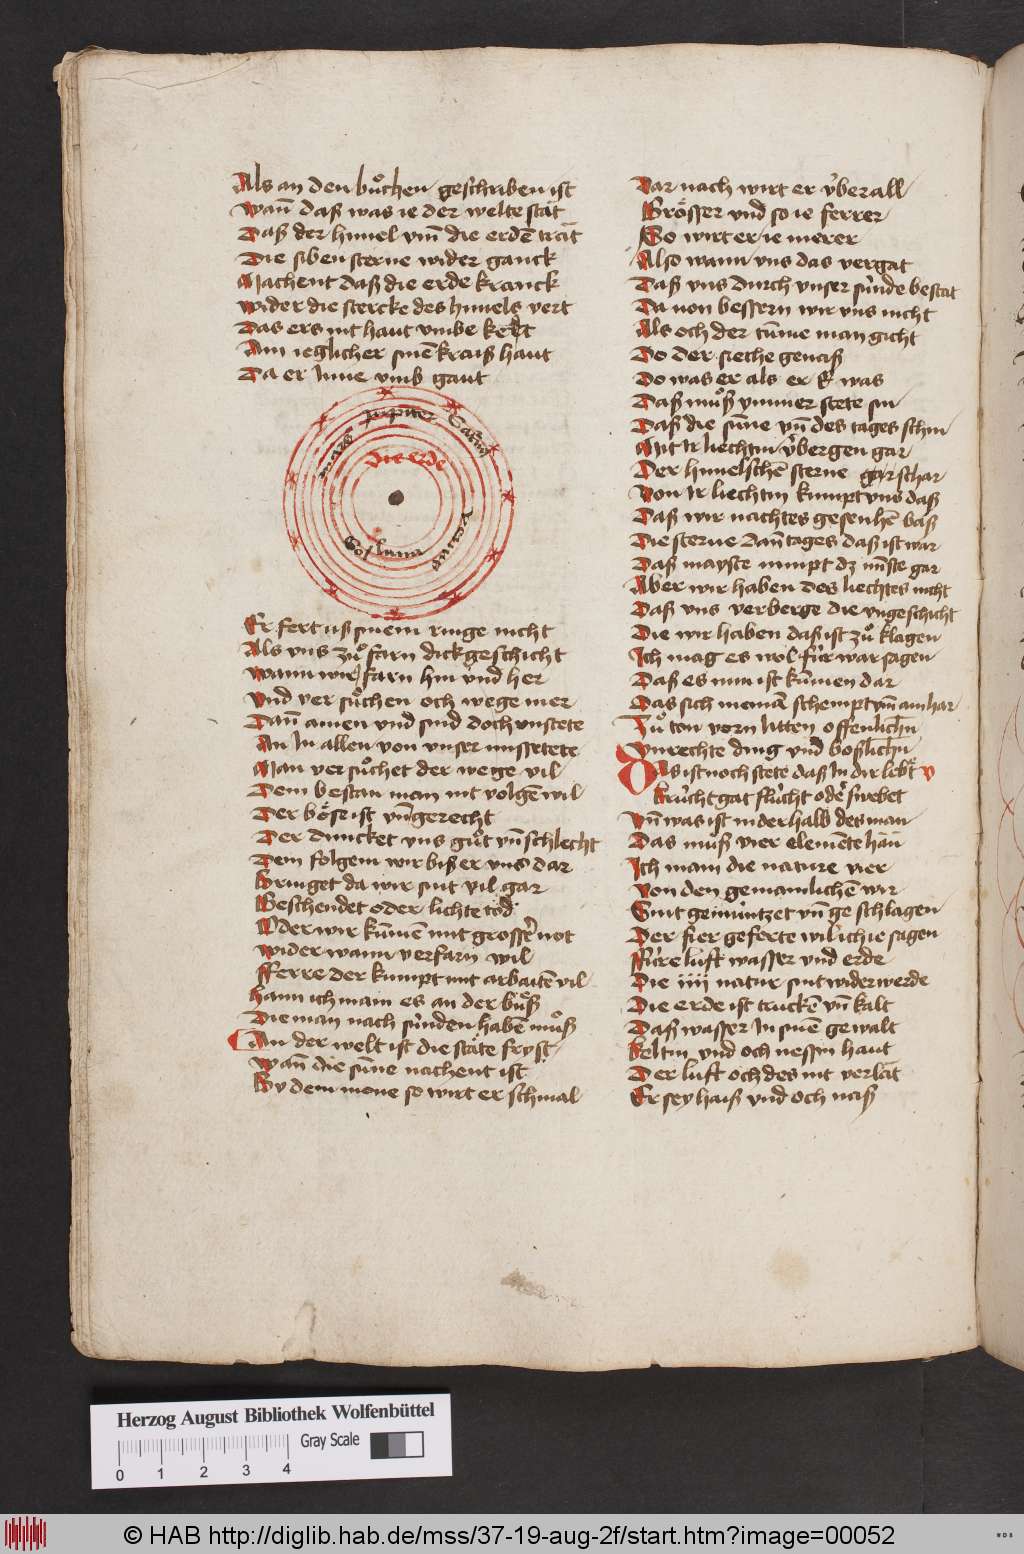 Als an den bůchen geschriben ist
wañ daß was ie der welte stät
Daß der himel vm̄ die erdē trät
Die siben sterne wider ganck
Machent daß die erde kranck
wider die stercke des himels vert
Das ers nit haut vmbe kert
Am ieglicher sinē kraiß haut
Da er Inne vmb gaut
Jupiter
Saturn
mars
die erde
venus
Sol
luna
Er fert uß sinem ringe nicht
Als vns zů farn dick geschicht
wann wir farn hin vnd her
vnd versůchen och wege mer
Dañ ainen vnd sind doch vnstete
An In allen von vnser missetete
Man versůchet der wege vil
Dem bestan man nit volgē wil
Der böse ist vñgerecht
Der duncket vns gůt vñ schlecht
Dem folgem wir biß er vns dar
bringet da wir sint vil gar
Geschendet oder lichte tod
Oder wir kūmē mit grosser not
wider wann verfarn wil
fferre der kumpt mit arbaitē vil
hann ich main es an der bůß
Die man nach sünden habē můß
An der welt ist die stäte fryst
wañ die sūne nachent ist
By dem mone so wirt er schmal
Dar nach wirt er v̈ber all
Grösser vnd so ie ferrer
So wirt er ie merer
Also wann vns das vergat
Daß vns durch vnser sünde bestat
Da von bessern wir vns nicht
Als och der tūme man gicht
Do der sieche genaß
Do was er als er E was
Daß můß ymmer stete sin
Daß die sūne vñ des tages schin
Mit Ir liechtin v̈bergen gar
Der himelschē sterne gar schar
von Ir liechtin kumpt vns daß
Daß wir nachtes gesenhē baß
Die sterne dañ tages daß ist war
Daß mayste nimpt dz mīste gar
Aber wir haben des liechtes nicht
Daß vns verberge die vngeschicht
Die wir haben daß ist zů klagen
Ich mag es wol für war sagen
Daß es nun ist kūmen dar
Das sich niemā schempt vm̄ ain har
Zů ton vorn lütten offenlichn
vnrechte ding vnd boslichn
Das ist noch stete daß In dir lebt v
krücht gat flücht oder swebet
vñ was ist inderhalb des man
Das můß vier elemēte hān
Ich main die nature vier
von den gemainlichē wir
Sint gemüntzet vñ geschlagen
Der fier geferte wil ich ie sagen
ffüre luft wasser vnd erde
Die iiij natur sint widerwerde
Die erde ist truckē vñ kalt
Daß wasser In sinē gewalt
keltin vnd och nessin haut
Der luft och des nit verlāt
Er sey haiß vnd och naß
Herzog August Bibliothek Wolfenbüttel
Gray Scale
0 1 2 3 4
© HAB http://diglib.hab.de/mss/37-19-aug-2f/start.htm?image=00052